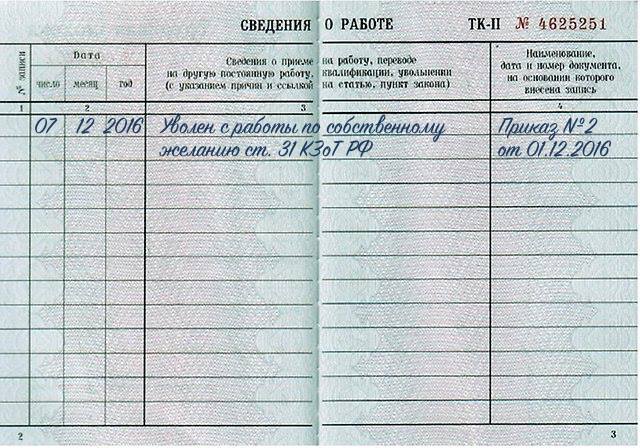 СВЕДЕНИЯ О РАБОТЕ ТК-II № 4625251
№ записи
Дата
число месяц год
Сведения о приеме на работу, переводе
на другую постоянную работу, квалификации, увольнении
(с указанием причин и ссылкой на статью, пункт закона)
Наименование,
дата и номер документа,
на основании которого
внесена запись
1 2 3 4
07 12 2016 Уволен с работы по собственному Приказ №2
желанию ст. 31 КЗоТ РФ от 01.12.2016
2 3